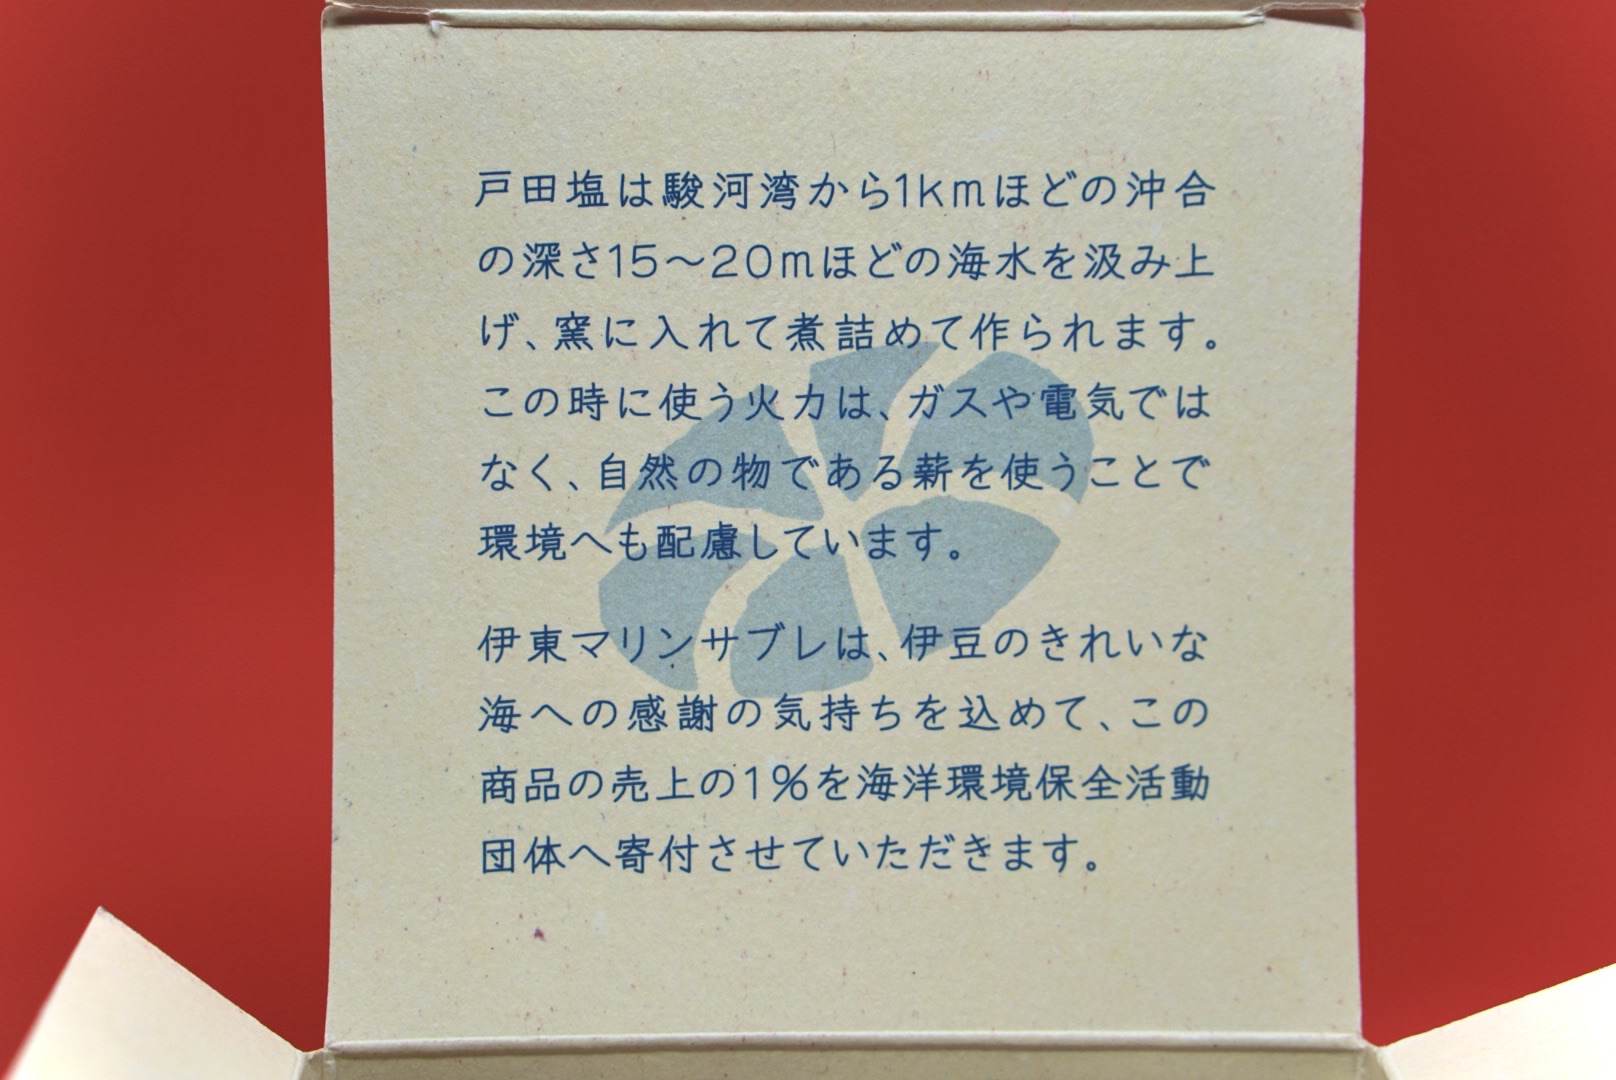 戸田塩は駿河湾から1kmほどの沖合
の深さ15〜20mほどの海水を汲み上
げ、窯に入れて煮詰めて作られます。
この時に使う火力は、ガスや電気では
なく、自然の物である薪を使うことで
環境へも配慮しています。
伊東マリンサブレは、伊豆のきれいな
海への感謝の気持ちを込めて、この
商品の売上の1%を海洋環境保全活動
団体へ寄付させていただきます。